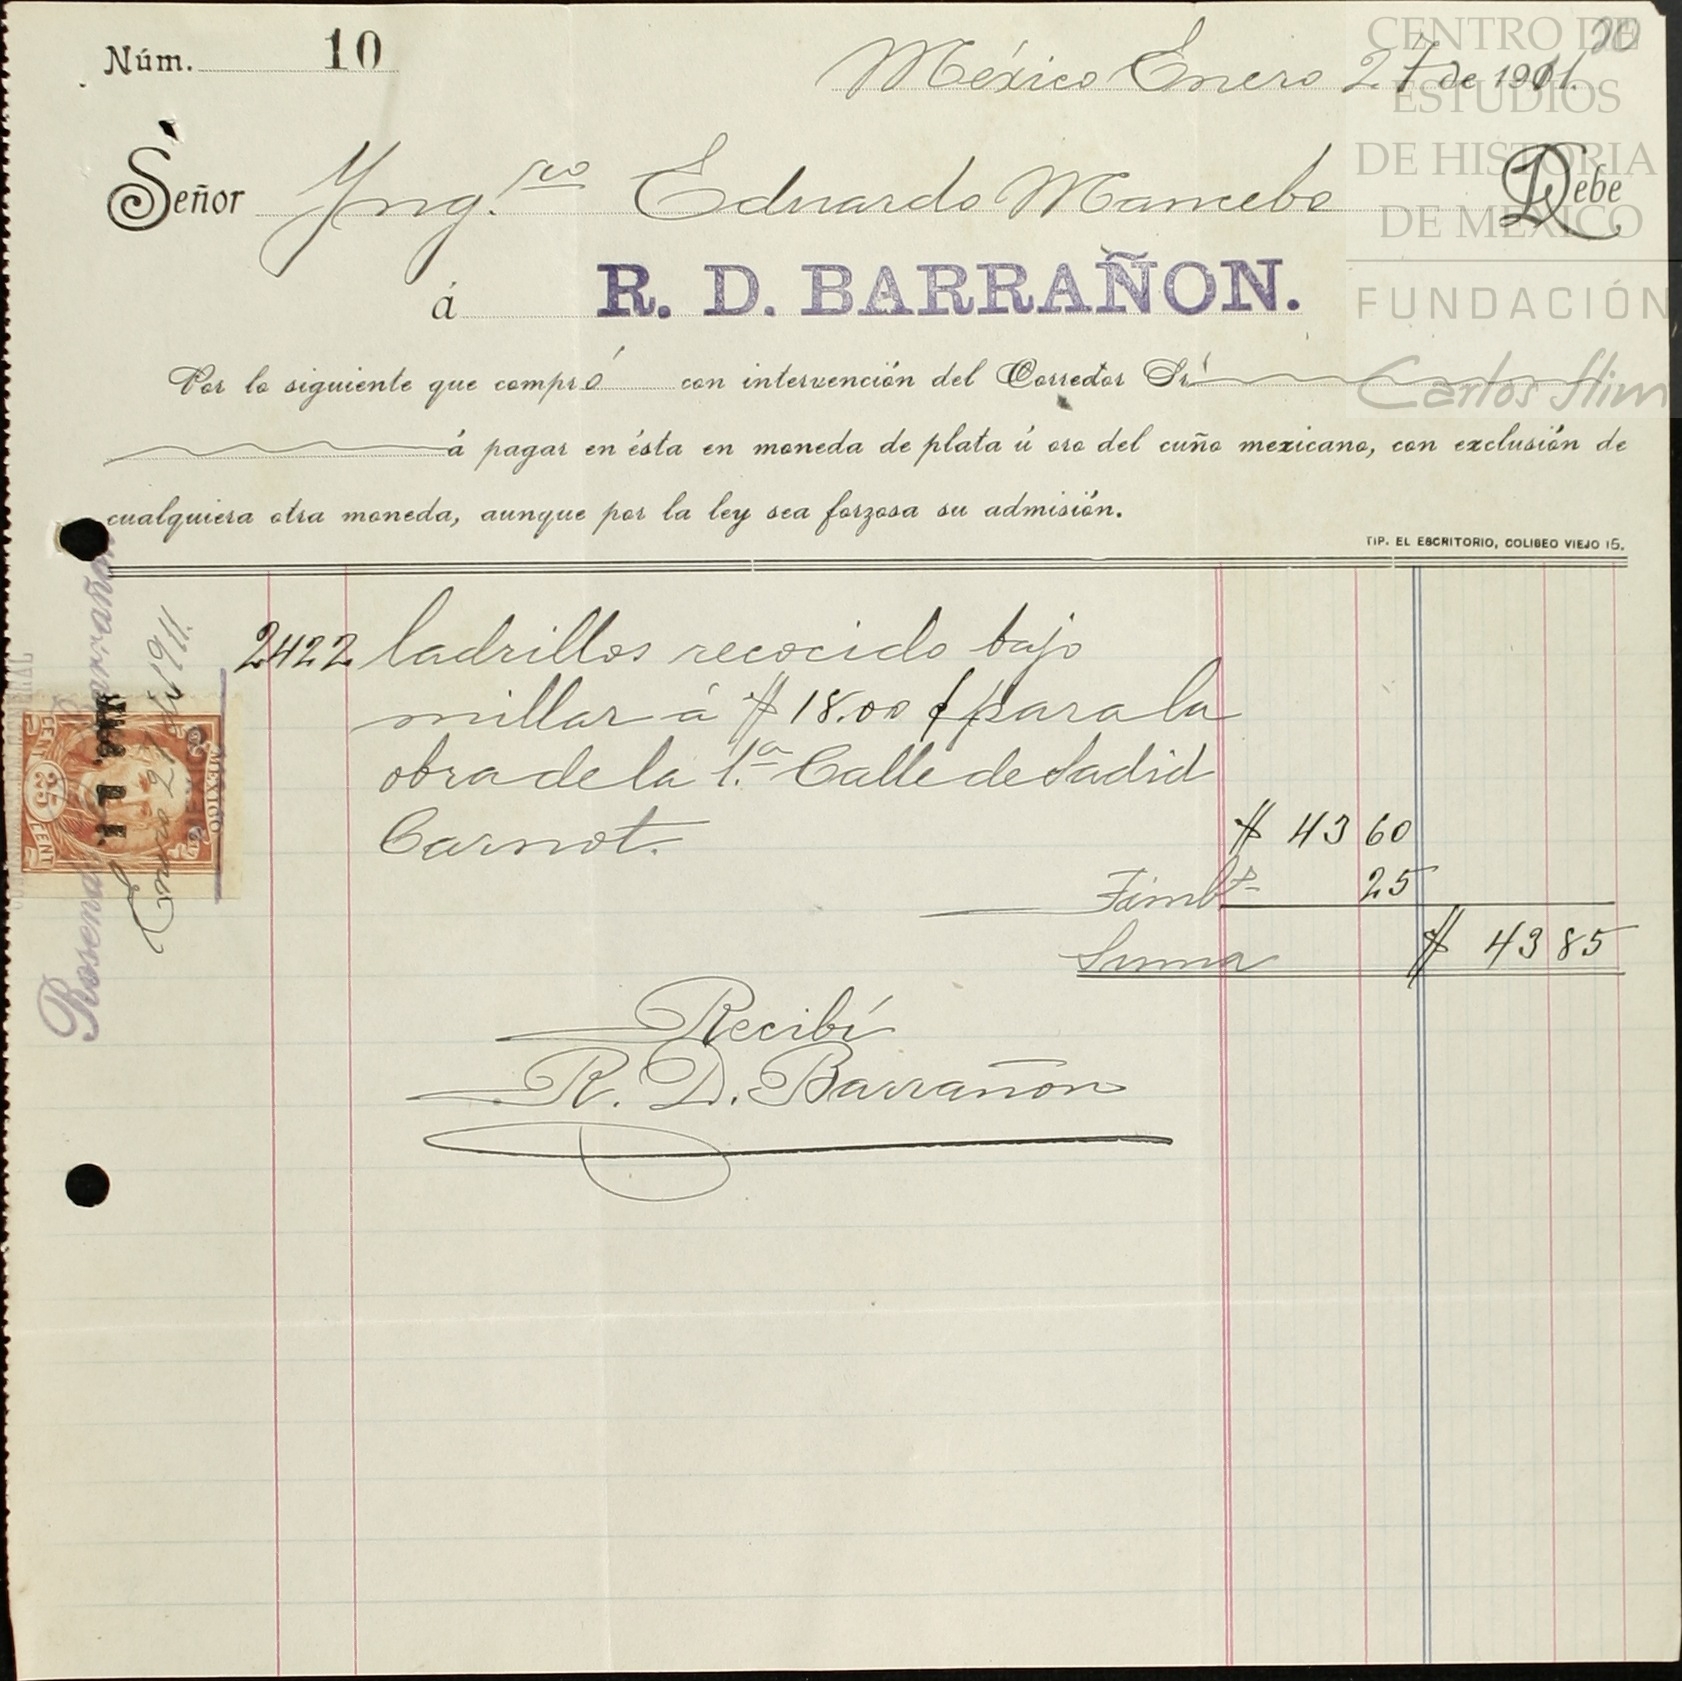 Núm. 10
México Enero 27 de 1911.
20
Señor Yng.ro Eduardo Mancebo Debe
á R. D. BARRAÑON.
Por lo siguiente que compró con intervención del Corredor Sr.
á pagar en ésta en moneda de plata ú oro del cuño mexicano, con exclusión de
cualquiera otra moneda, aunque por la ley sea forzosa su admisión.
TIP. EL ESCRITORIO, COLISEO VIEJO 15.
2422 ladrillos recocido bajo
millar á $ 18.00 para la
obra de la 1.a Calle de Sadid
Carnot. $ 43 60
Timbs 25
Suma $ 43 85
Recibí
R. D. Barrañón
Rosendo Barrañón
Enero 27 de 1911.
MEXICO
25
CENT
CENT
CENTRO DE
ESTUDIOS
DE HISTORIA
DE MÉXICO
FUNDACIÓN
Carlos Slim